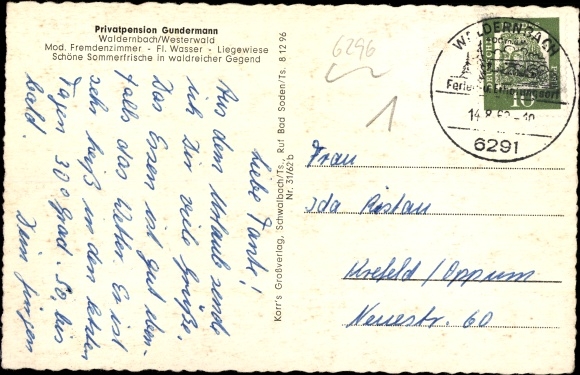 Privatpension Gundermann
Waldernbach/Westerwald
Mod. Fremdenzimmer - Fl. Wasser - Liegewiese
Schöne Sommerfrische in waldreicher Gegend
Liebe Tante!
Aus dem Urlaub sende
ich Dir viele Grüße.
Das Essen ist gut eben-
falls das Wetter. Es ist
sehr heiß in den letzten
Tagen 30 Grad. So, bis
bald.
Dein
Korr's Großverlag, Schwalbach/Ts., Ruf Bad Soden/Ts. 8 12 96
Nr. 31/62 b
6296
1
WALDERNBACH
Ferien- u. Erholungsort
14.8.
6291
10
Frau
Ida
Krefeld/Oppum
Neuestr. 60